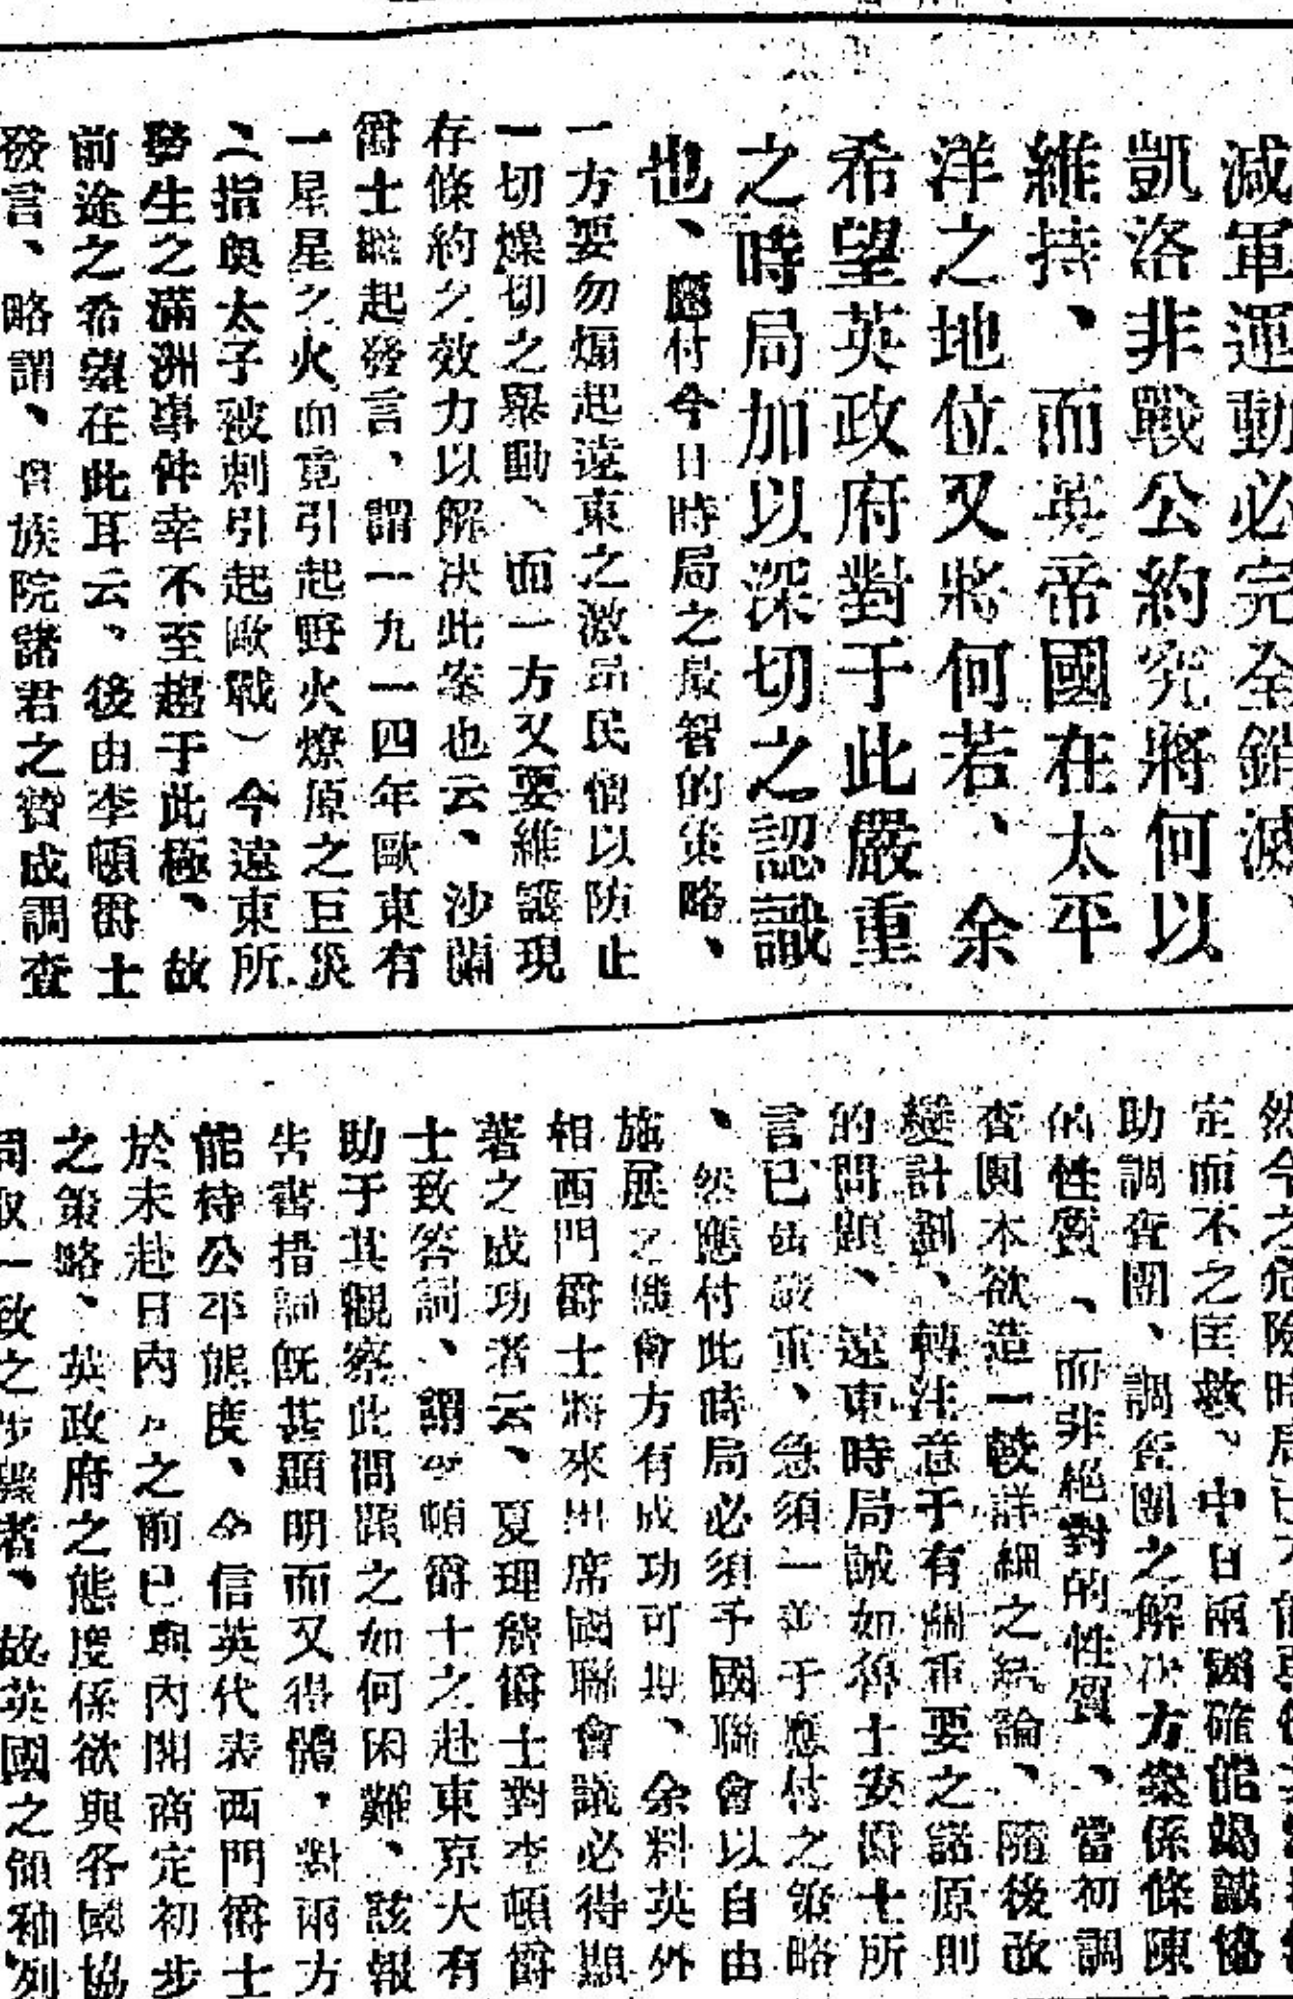 減軍運動必完全銷滅、
凱洛非戰公約究將何以
維持、而英帝國在太平
洋之地位又將何若、余
希望英政府對于此嚴重
之時局加以深切之認識
也、應付今日時局之最智的策略、
一方要勿煽起遠東之激昂民情以防止
一切燥切之舉動、而一方又要維護現
存條約之效力以解決此案也云、沙蘭
爵士繼起發言、謂一九一四年歐東有
一星星之火而竟引起野火燎原之巨災
、(指奧太子被刺引起歐戰)今遠東所
發生之滿洲事件幸不至趨于此極、故
前途之希望在此耳云、後由李頓爵士
發言、略謂、貴族院諸君之贊成調查
然今之危險時局已不能再
定而不之匡救、中日兩國確能竭誠協
助調查團、調查團之解決方案係條陳
的性質、而非絕對的性質、當初調
查團本欲造一較詳細之結論、隨後改
變計劃、轉注意于有關重要之諸原則
的問題、遠東時局誠如爵士安爵士所
言已甚嚴重、急須一並于應付之策略
、然應付此時局必須予國聯會以自由
施展之機會方有成功可期、余料英外
相西門爵士將來出席國聯會議必得顯
著之成功者云、夏理詹爵士對李頓爵
士致答詞、謂李頓爵士之赴東京大有
助于其觀察此問題之如何困難、該報
告書措詞既甚顯明而又得體、對兩方
能持公平態度、余信英代表西門爵士
於未赴日內瓦之前已與內閣商定初步
之策略、英政府之態度係欲與各國協
同取一致之步驟者、故英國之領袖列